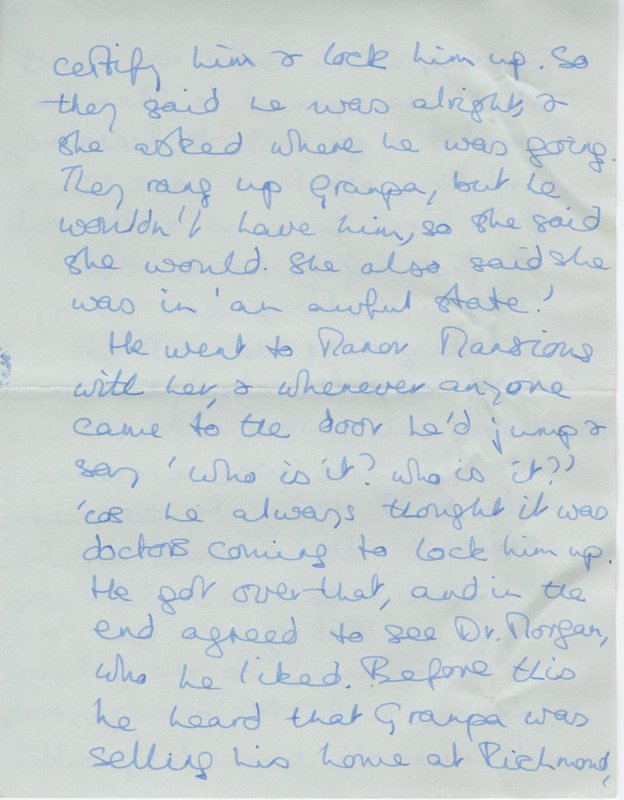 certify him & lock him up. So
they said he was alright, &
she asked where he was going.
They rang up Granpa, but he
wouldn't have him, so she said
she would. She also said she
was in 'an awful state.'
He went to Manor Mansions
with her, & whenever anyone
came to the door he'd jump &
say 'who is it? who is it?'
'cos he always thought it was
doctors coming to lock him up.
He got over that, and in the
end agreed to see Dr. Morgan,
who he liked. Before this
he heard that Granpa was
selling his home at Richmond,